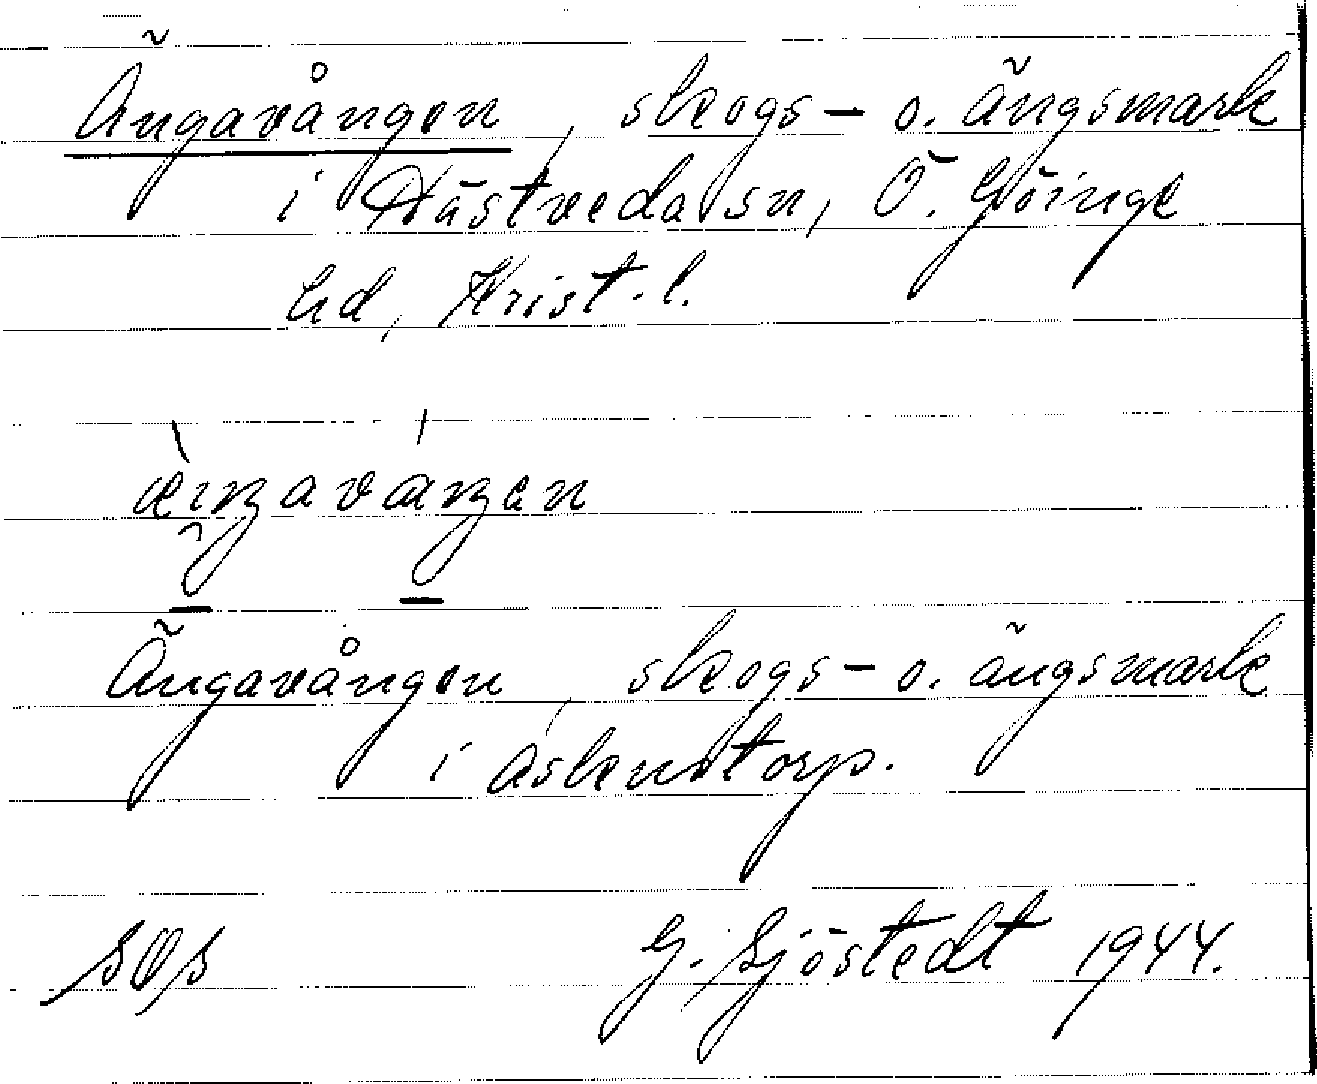 Ängavången, skogs- o. ängsmark
i Hästveda sn, Ö. Göinge
hd, Krist. l.
Ängavången, skogs- o. ängsmark
i Åskenstorp.
G. Sjöstedt 1944.